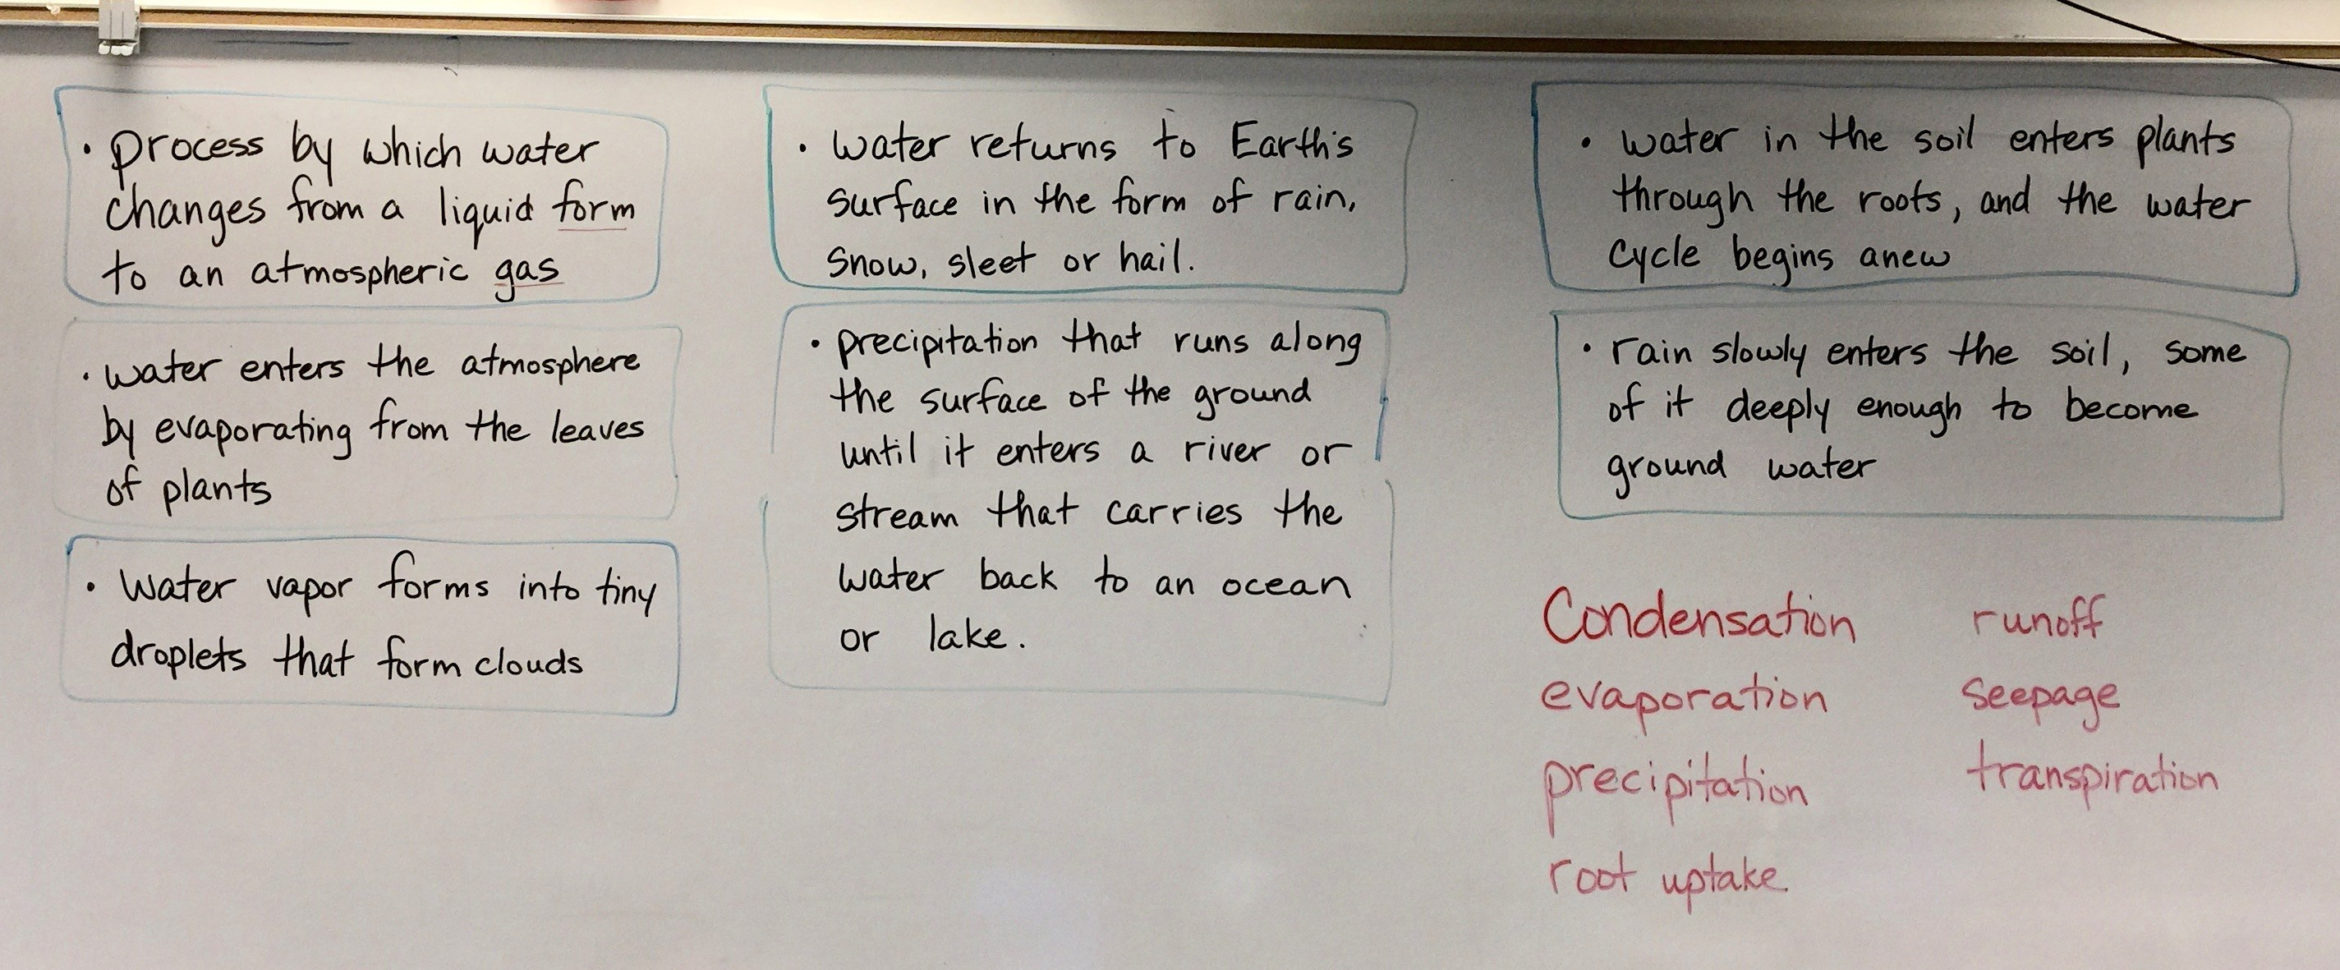 • process by which water
changes from a liquid form
to an atmospheric gas
• water enters the atmosphere
by evaporating from the leaves
of plants
• Water vapor forms into tiny
droplets that form clouds
• water returns to Earth's
surface in the form of rain,
snow, sleet or hail.
• precipitation that runs along
the surface of the ground
until it enters a river or
stream that carries the
water back to an ocean
or lake.
• water in the soil enters plants
through the roots, and the water
cycle begins anew
• rain slowly enters the soil, some
of it deeply enough to become
ground water
Condensation
evaporation
precipitation
root uptake
runoff
seepage
transpiration